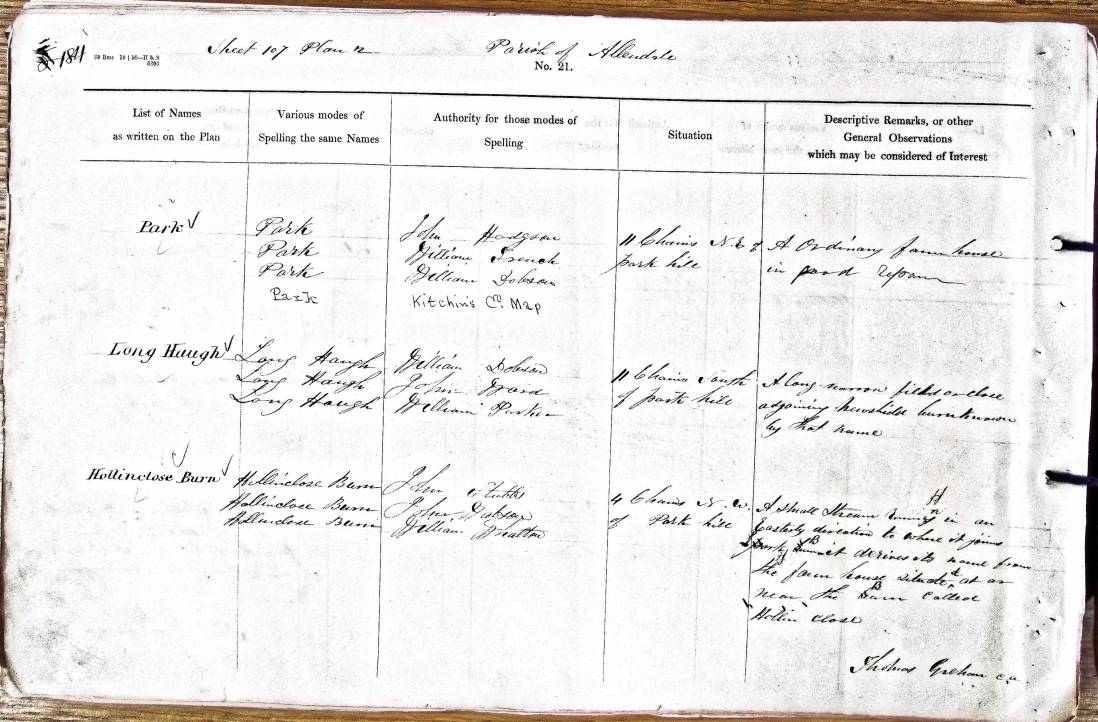 184
Sheet 107 Plan 12
Parish of Allendale
No. 21.
List of Names
as written on the Plan
Various modes of
Spelling the same Names
Authority for those modes of
Spelling
Situation
Descriptive Remarks, or other
General Observations
which may be considered of Interest
Park
Park
Park
Park
Park
John Hodgson
William French
William Dobson
Kitchin's Co. Map
11 Chains N.E of
park hill
A Ordinary farm house
in good repair
Long Haugh
Long Haugh
Long Haugh
Long Haugh
William Dobson
John
William Parker
11 Chains South
of park hill
A long narrow filed or close
adjoining burn known
by that name
Hollinclose Burn
Hollinclose Burn
Hollinclose Burn
Hollinclose Burn
John Stubbs
John
William
4 Chains N.W.
of Park hill
A Small Stream in an
Easterly direction to where it joins
derives its name from
the farm house Situate at or
near the Burn called
Hollin close
Thomas Graham c.a.